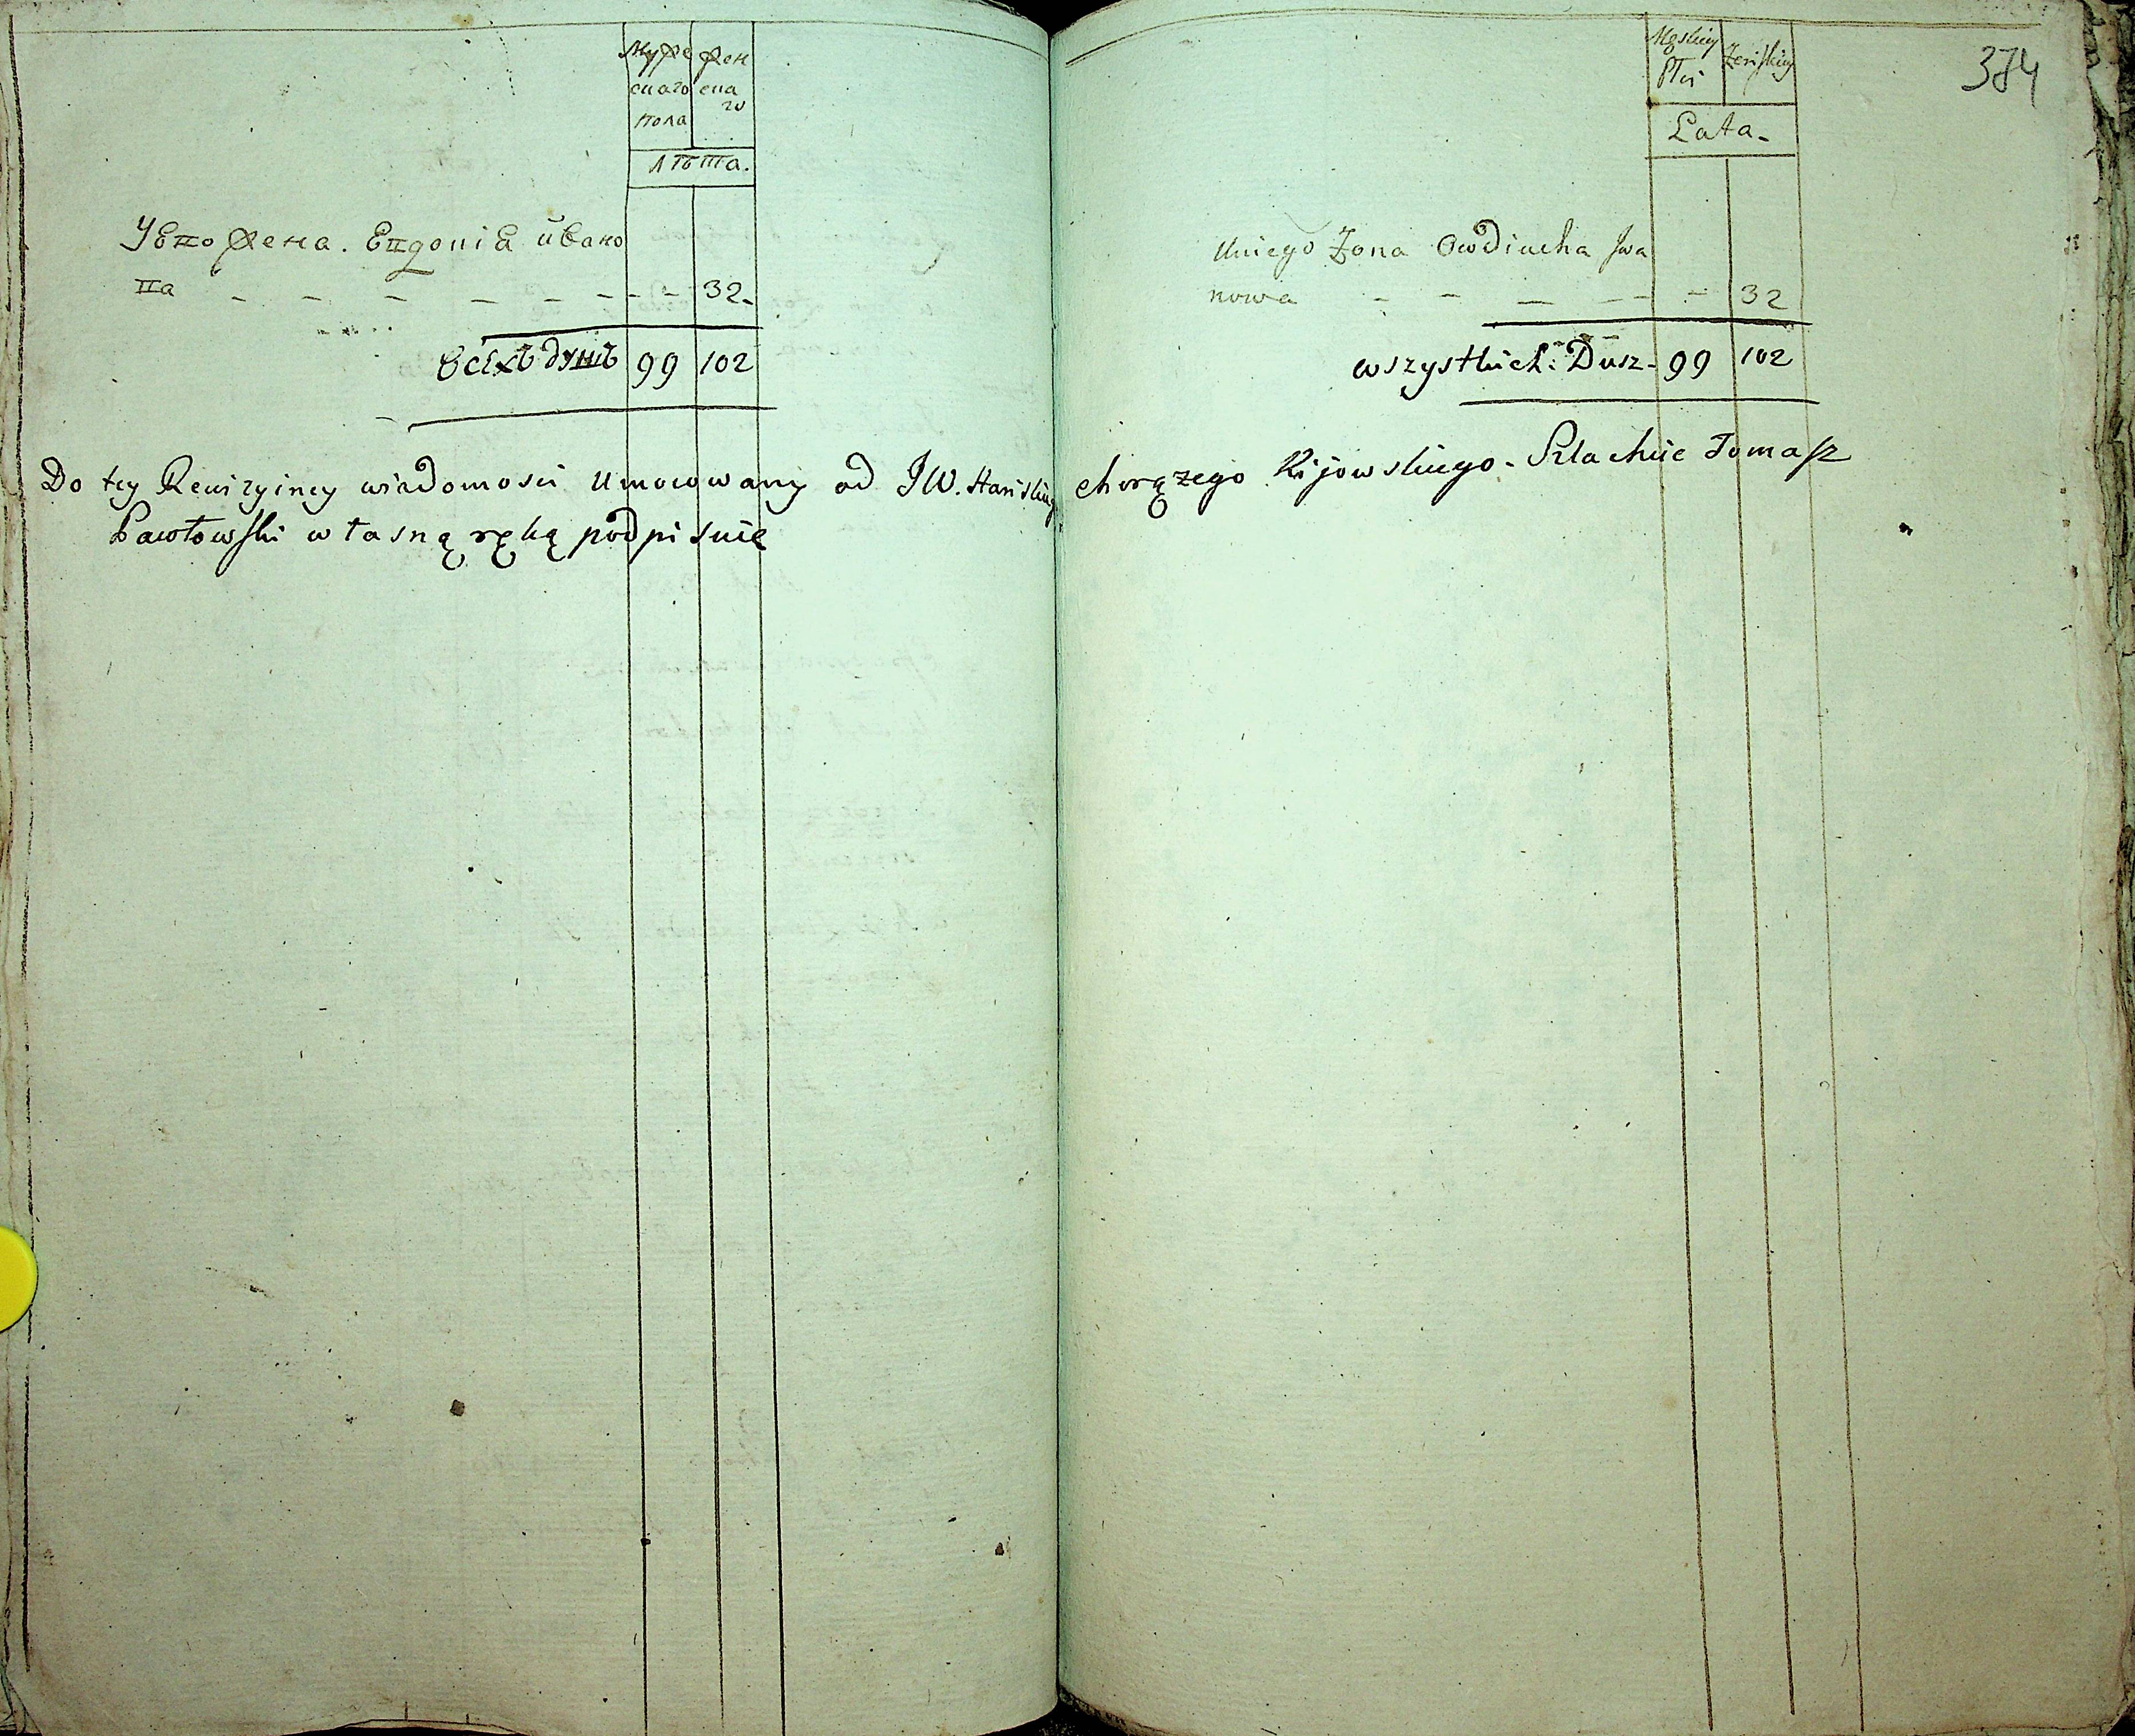 Муже
скаго
пола
жен
ска
го
лѣта.
У его жена. Евдокиѣ ива но
ва - - - - - - - - 32.
всѣхъ душъ 99 102
Męskiey
Płci
Żeńskiey
Lata-
374
Uniego Żona Owdiucha Jwa
nowa - - - - - - 32
wszystkich: Dusz- 99 102
Do tey Rewizyiney wiadomości Umocowany od JW. Hańskiego chorążego Kijowskiego- Szlachcic Tomasz
Pawłowski własną ręką podpisuię